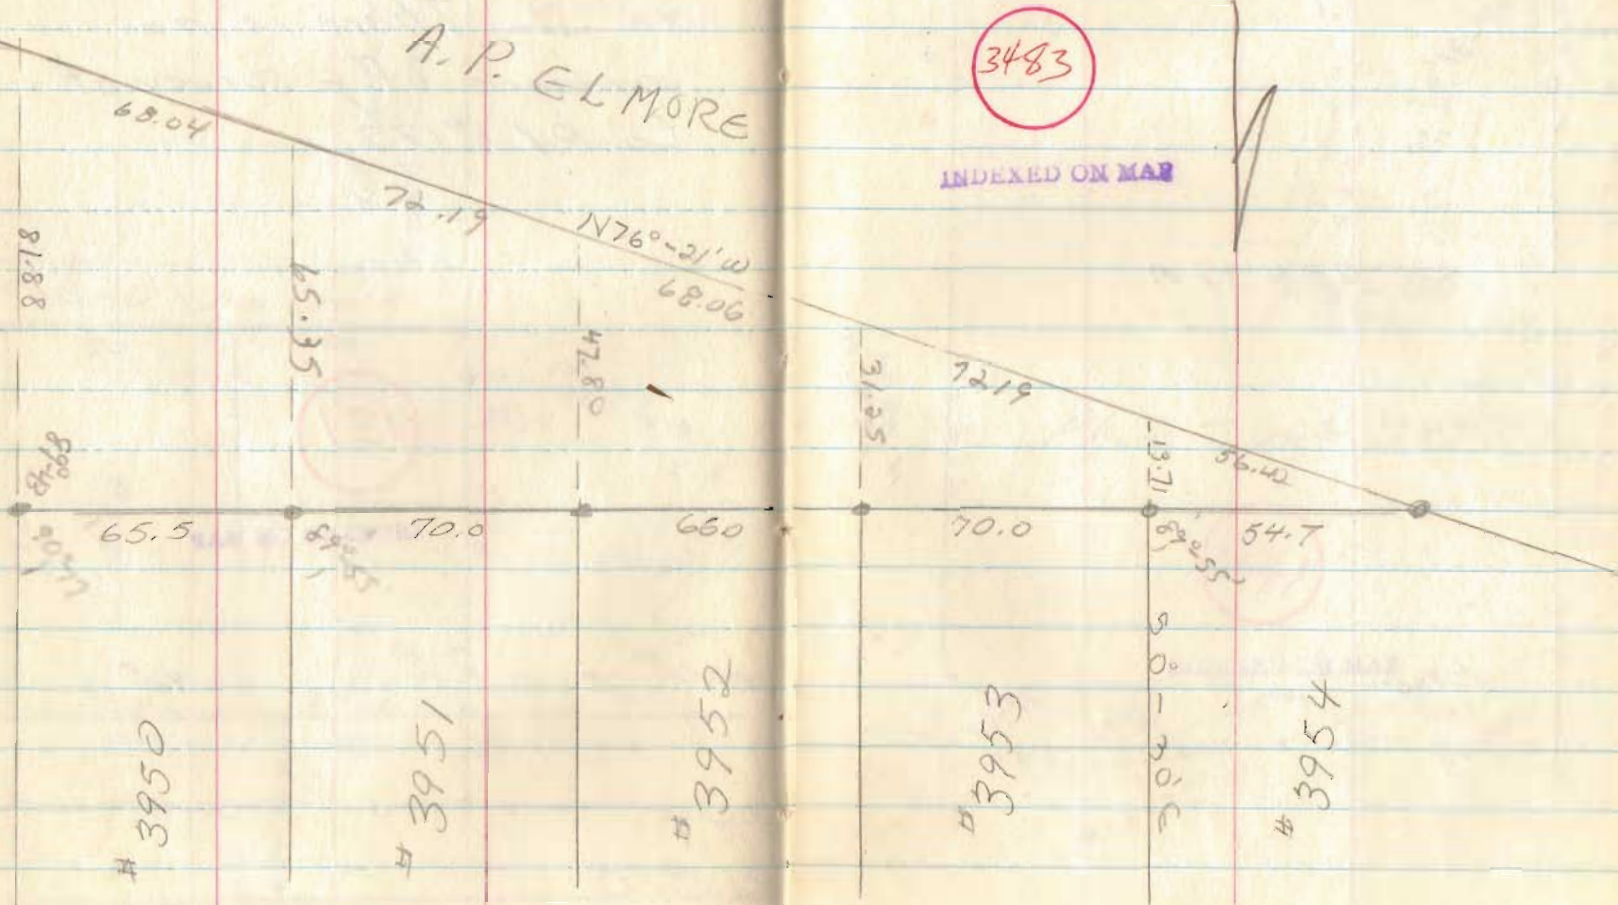 A. P. ELMORE
3483
INDEXED ON MAP
68.04
72.19
N76°-21'W
68.06
72.19
56.42
81.88
65.35
47.80
31.25
13.71
65.5
70.0
66.0
70.0
54.7
89°-55'
89°-55'
S 0°-30' E
# 3950
# 3951
# 3952
# 3953
# 3954